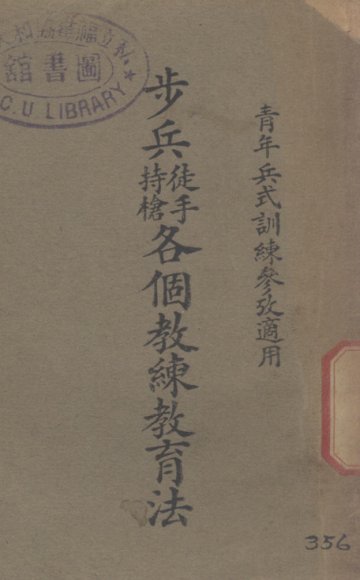 青年兵式訓練參攷適用
步兵徒手持槍各個教練教育法
私立福建協和
圖書館
C.U LIBRARY
356